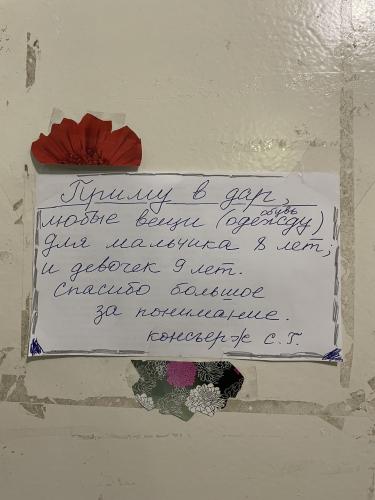 Приму в дар,
любые вещи (одежду) обувь
для мальчика 8 лет;
и девочек 9 лет.
Спасибо большое
за понимание.
консьерж С.Г.